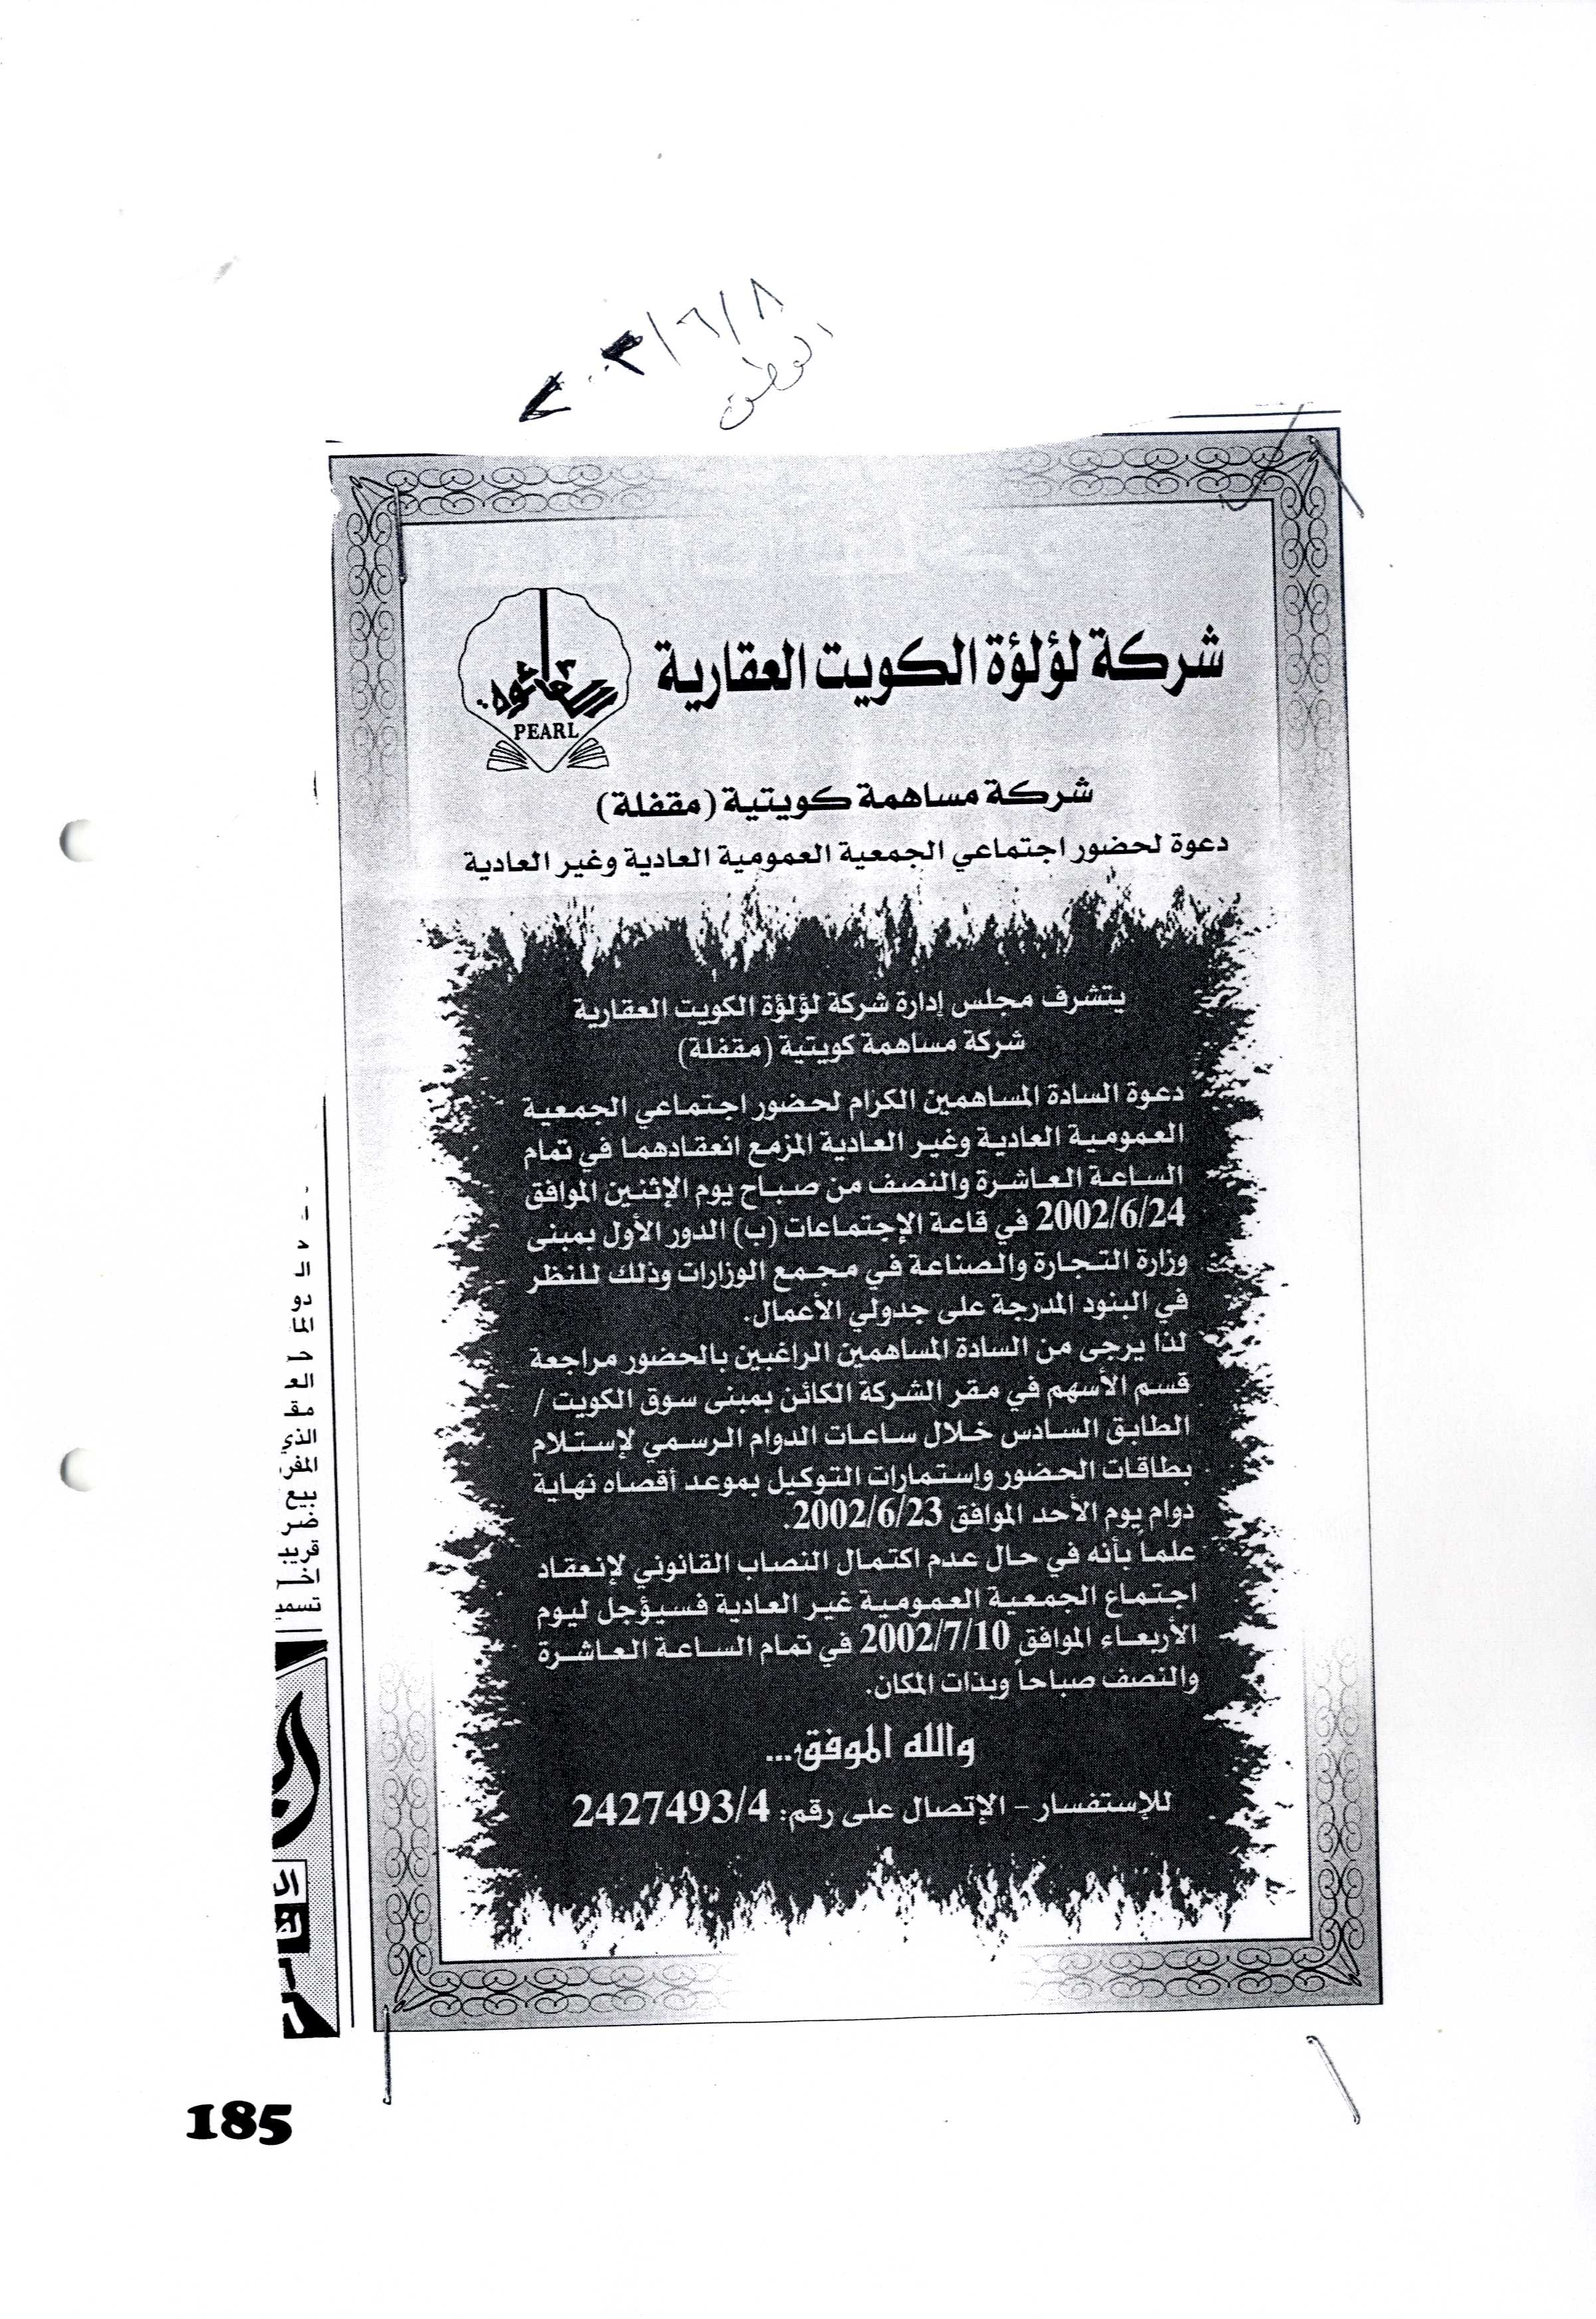 ٢٠٠٢/٦/٨
الوطن
شركة لؤلؤة الكويت العقارية
PEARL
شركة مساهمة كويتية (مقفلة)
دعوة لحضور اجتماعي الجمعية العمومية العادية وغير العادية
يتشرف مجلس إدارة شركة لؤلؤة الكويت العقارية
شركة مساهمة كويتية (مقفلة)
دعوة السادة المساهمين الكرام لحضور اجتماعي الجمعية
العمومية العادية وغير العادية المزمع انعقادهما في تمام
الساعة العاشرة والنصف من صباح يوم الإثنين الموافق
2002/6/24 في قاعة الإجتماعات (ب) الدور الأول بمبنى
وزارة التجارة والصناعة في مجمع الوزارات وذلك للنظر
في البنود المدرجة على جدولي الأعمال.
لذا يرجى من السادة المساهمين الراغبين بالحضور مراجعة
قسم الأسهم في مقر الشركة الكائن بمبنى سوق الكويت /
الطابق السادس خلال ساعات الدوام الرسمي لإستلام
بطاقات الحضور وإستمارات التوكيل بموعد أقصاه نهاية
دوام يوم الأحد الموافق 2002/6/23.
علماً بأنه في حال عدم اكتمال النصاب القانوني لإنعقاد
اجتماع الجمعية العمومية غير العادية فسيؤجل ليوم
الأربعاء الموافق 2002/7/10 في تمام الساعة العاشرة
والنصف صباحاً وبذات المكان.
والله الموفق...
للإستفسار - الإتصال على رقم: 2427493/4
185